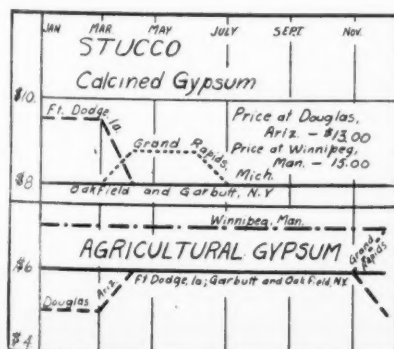 JAN MAR. MAY JULY SEPT. NOV.
STUCCO
Calcined Gypsum
$10.
Ft. Dodge, Ia.
Price at Douglas,
Ariz. - $13.00
Grand Rapids,
Price at Winnipeg,
Man. - 15.00
Mich.
$8
Oakfield and Garbutt, N.Y
Winnipeg, Man.
AGRICULTURAL GYPSUM
Grand Rapids
$6
Ft Dodge, Ia; Garbutt and Oakfield, N.Y.
Douglas Ariz.
$4